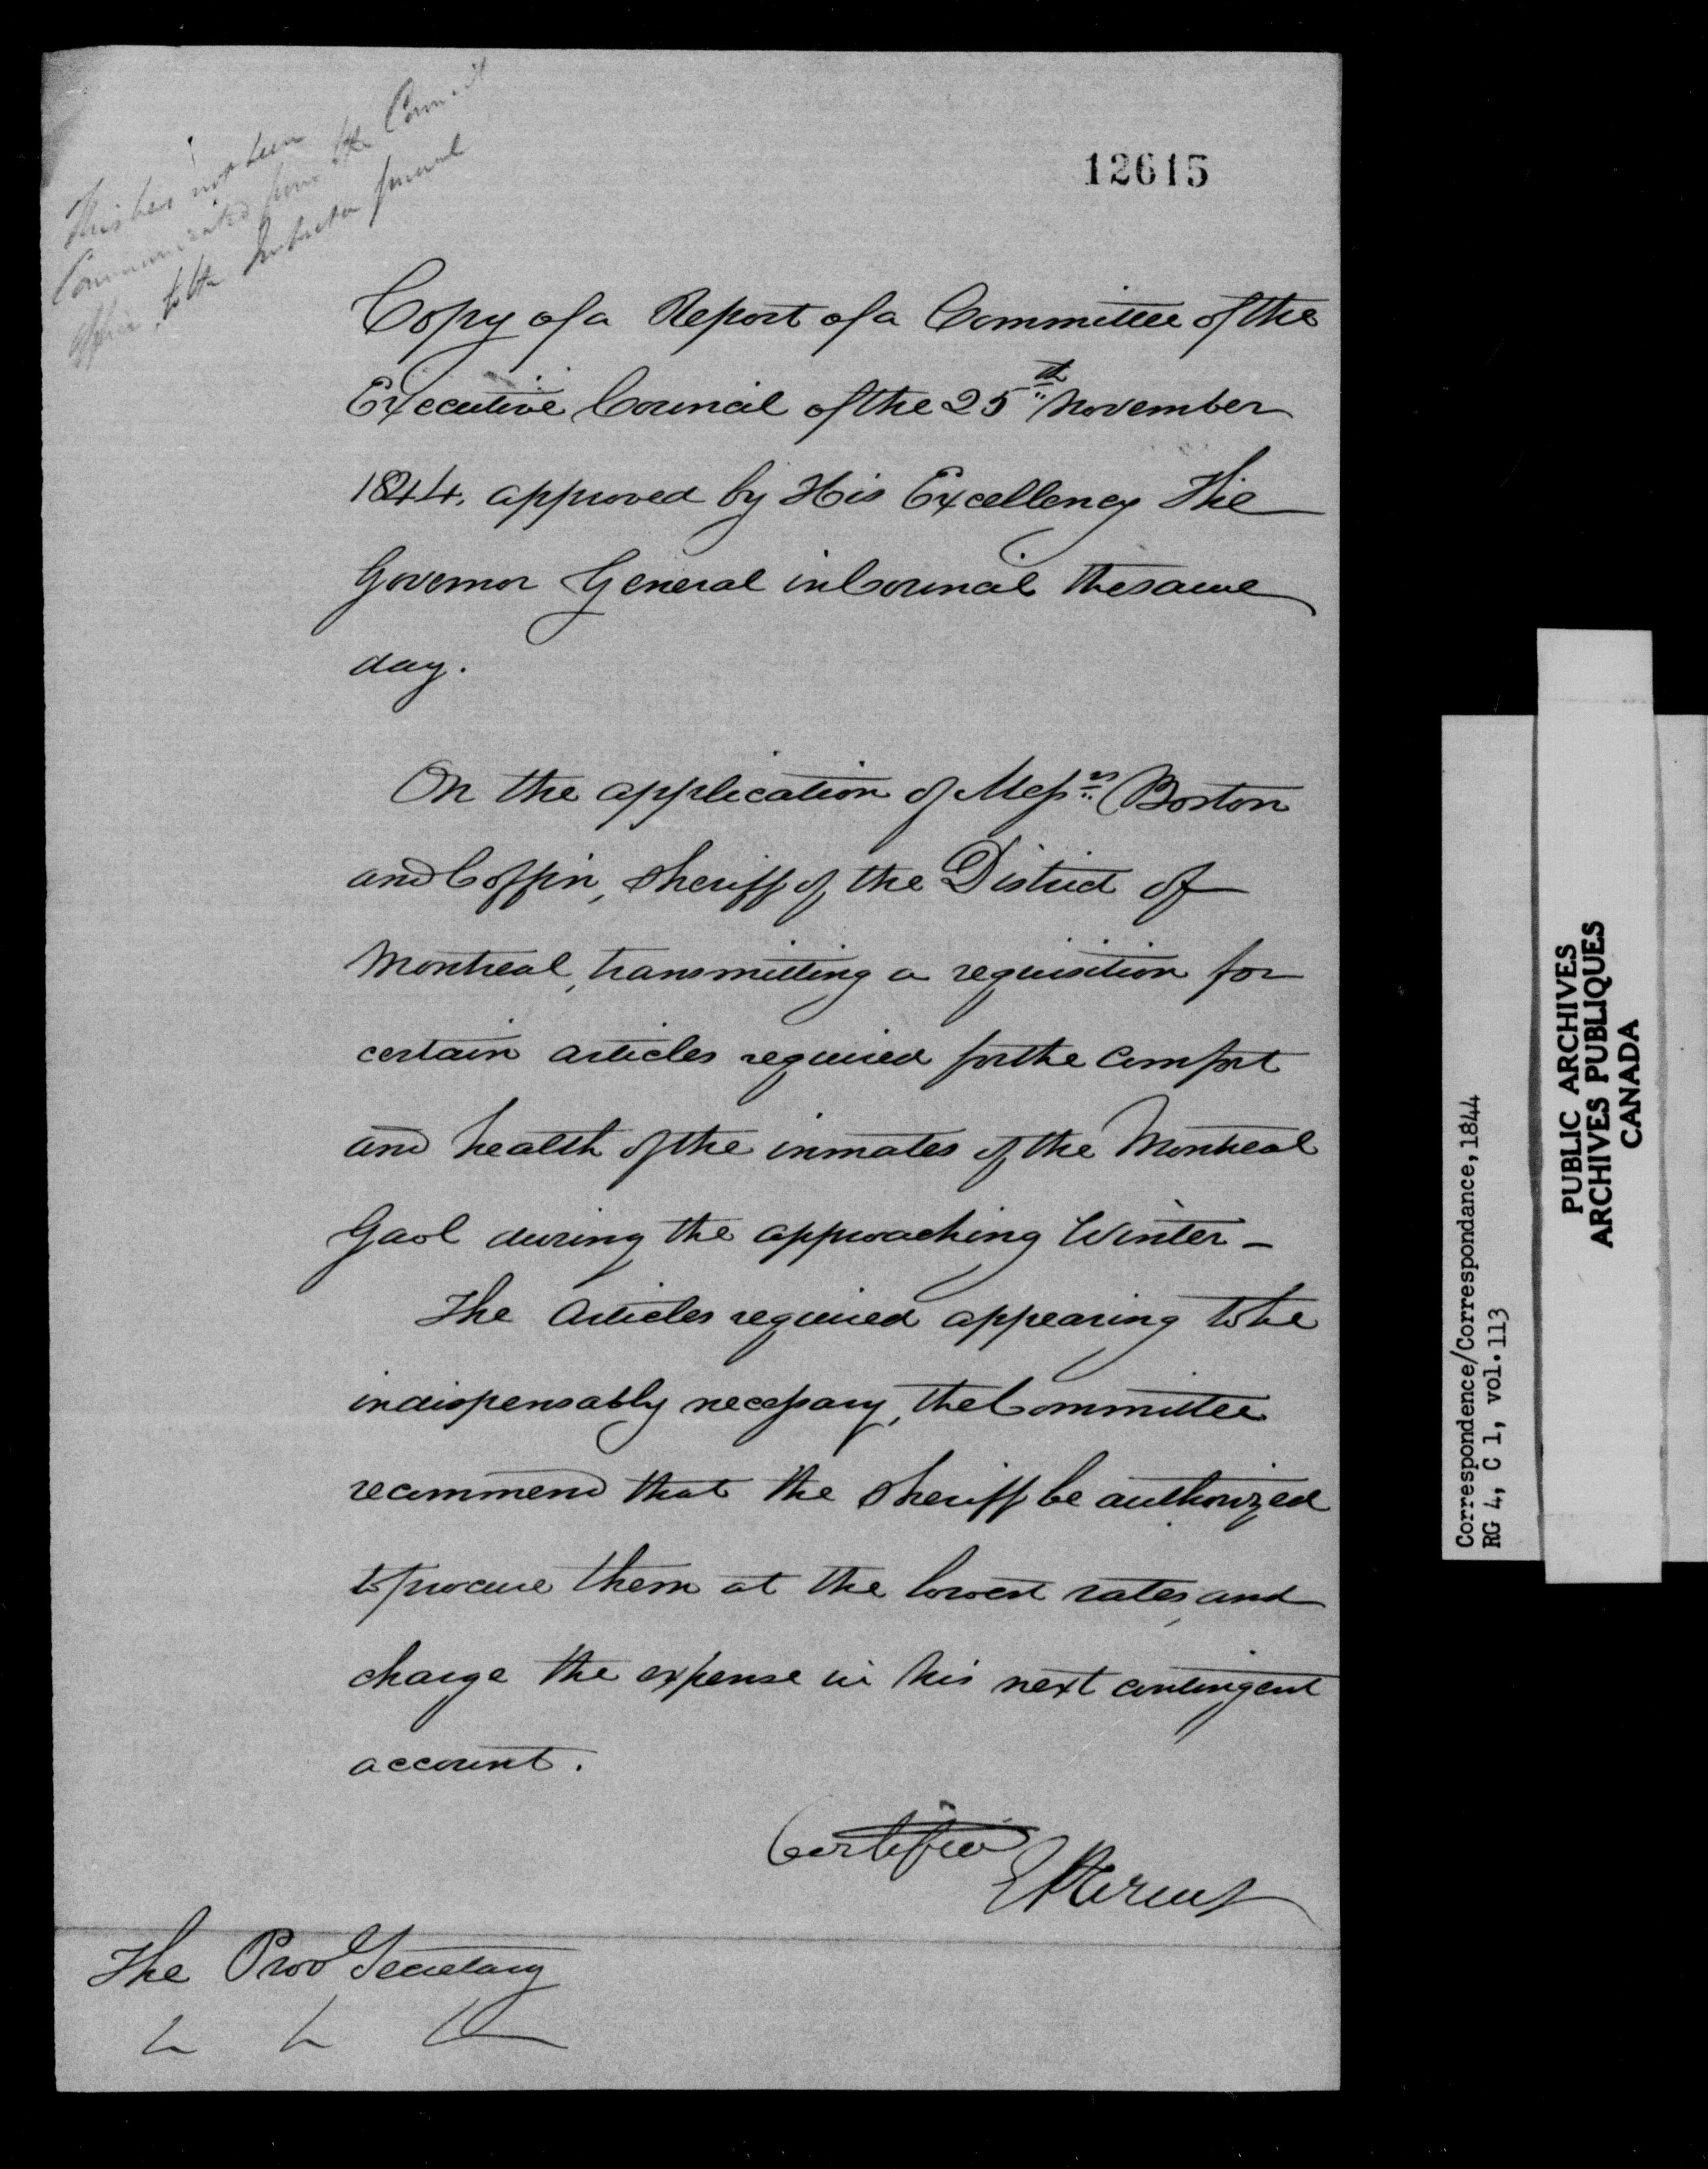 This has not been
Communicated from the Council
Office to the Inspector General
12615
Copy of a Report of a Committee of the
Executive Council of the 25th November
1844, approved by His Excellency The
Governor General in Council the same
day.
On the application of Messrs Boston
and Coffin, Sheriff of the District of
Montreal, transmitting a requisition for
certain articles required for the comfort
and health of the inmates of the Montreal
Gaol during the approaching Winter –
The Articles required appearing to be
indispensably necessary, the Committee
recommend that the Sheriff be authorized
to procure them at the lowest rates, and
charge the expense in his next contingent
account.
Certified
E Parent
The Prov Secretary
Correspondence/Correspondance, 1844
RG 4, C 1, vol. 113
PUBLIC ARCHIVES
ARCHIVES PUBLIQUES
CANADA